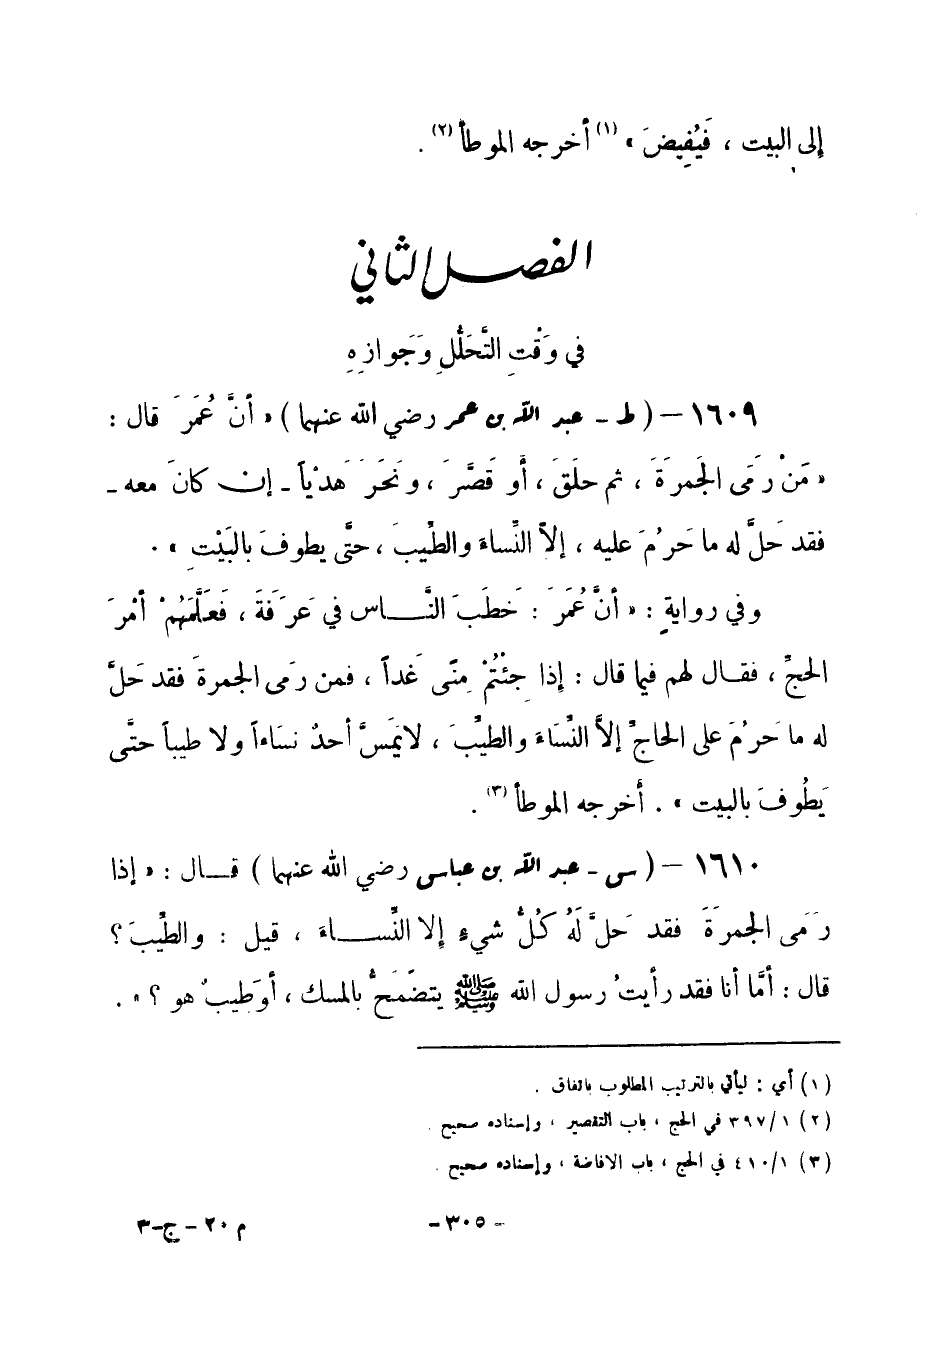 إلى البيت ، فَيُفِيضَ » (١) أخرجه الموطأ (٢) .
الفصل الثاني
في وَقْتِ التَّحَلُّلِ وَجَوازِهِ
١٦٠٩ – ( ط – عبد الله بن عمر رضي الله عنهما ) « أنَّ عُمَرَ قال :
« مَنْ رَمَى الجَمرةَ ، ثم حلَقَ ، أَو قَصَّرَ ، ونَحَرَ هَدْياً – إن كانَ معه –
فقد حَلَّ له ما حَرُمَ عليه ، إلاَّ النِّساءَ والطِّيبَ ، حتَّى يطوفَ بالبَيْتِ » .
وفي روايةٍ : « أنَّ عُمَرَ : خَطَبَ النَّاس في عَرَفَةَ ، فَعَلَّمَهُمْ أمْرَ
الحجِّ ، فقال لهم فيما قال : إِذا جِئْتُمْ مِنًى غَداً ، فمن رَمَى الجمرةَ فقد حَلَّ
له ما حَرُمَ على الحاجِّ إلاَّ النِّسَاءَ والطيِّبَ ، لا يَمَسَّ أحدٌ نسَاءاً ولا طيباً حتَّى
يَطُوفَ بالبيت » . أخرجه الموطأ (٣) .
١٦١٠ – ( س – عبد الله بن عباس رضي الله عنهما ) قال : « إذا
رَمَى الجمرَةَ فقد حَلَّ لَهُ كُلُّ شيءٍ إلا النِّساءَ ، قيل : والطِّيبَ ؟
قال : أمَّا أنا فقد رأيتُ رسول الله ﷺ يتضَمَّخُ بالمسك ، أوَطِيبٌ هو ؟ » .
(١) أي : ليأتي بالترتيب المطلوب باتفاق .
(٢) ٣٩٧/١ في الحج ، باب التقصير ، وإسناده صحيح .
(٣) ٤١٠/١ في الحج ، باب الافاضة ، وإسناده صحيح .
– ٣٠٥ –
م ٢٠ – ج – ٣